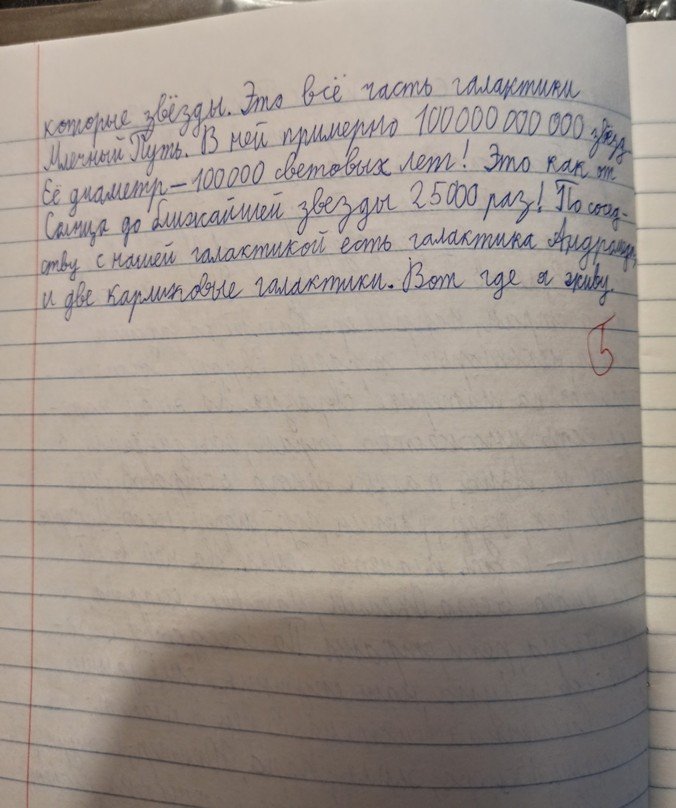 которые звёзды. Это всё часть галактики
Млечный Путь. В ней примерно 100000000000 звёзд.
Её диаметр – 100000 световых лет! Это как от
Солнца до ближайшей звезды 25000 раз! По сосед-
ству с нашей галактикой есть галактика Андромеда,
и две карликовые галактики. Вот где я живу.
5